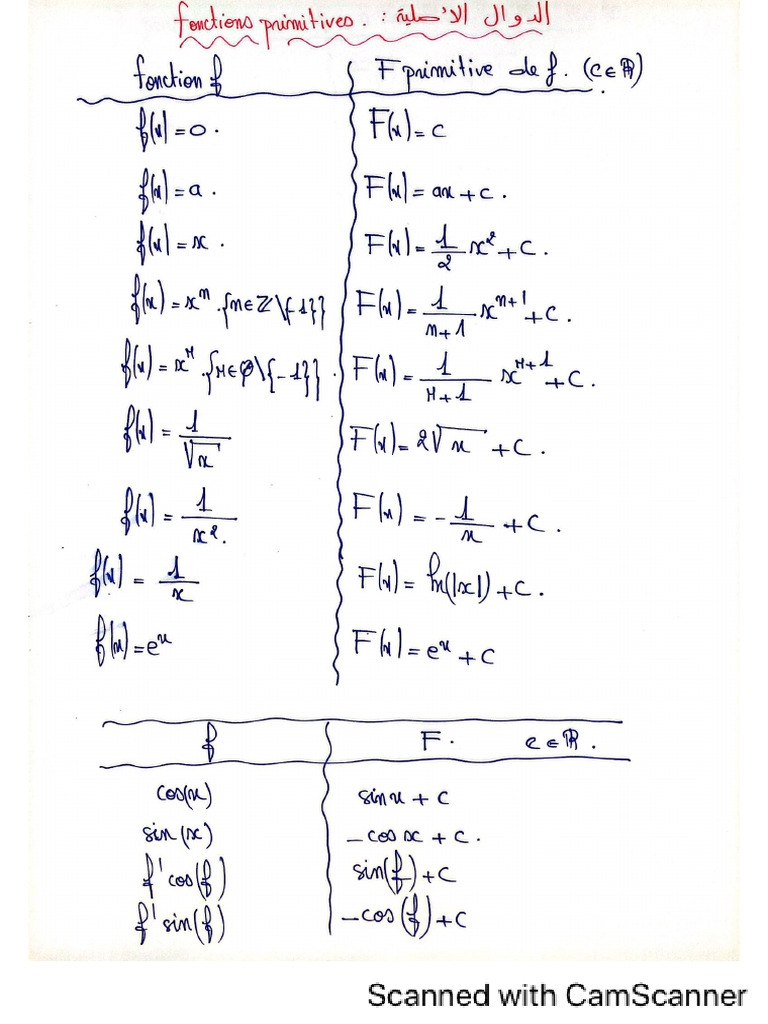 fonctions primitives. : الدوال الأصلية
fonction f F primitive de f. (c∈ℝ)
f(x)=0. F(x)=c
f(x)=a. F(x)=ax+c.
f(x)=x. F(x)=1/2 x²+c.
f(x)=xⁿ.{n∈ℤ\{-1}} F(x)=1/(n+1) xⁿ⁺¹+c.
f(x)=x^r.{r∈ℚ\{-1}}. F(x)=1/(r+1) x^(r+1)+c.
f(x)=1/√x F(x)=2√x+c.
f(x)=1/x². F(x)=-1/x+c.
f(x)=1/x F(x)=ln(|x|)+c.
f(x)=eˣ F(x)=eˣ+c
f F. c∈ℝ.
cos(x) sin x+c
sin(x) -cos x+c.
f'cos(f) sin(f)+c
f'sin(f) -cos(f)+c
Scanned with CamScanner